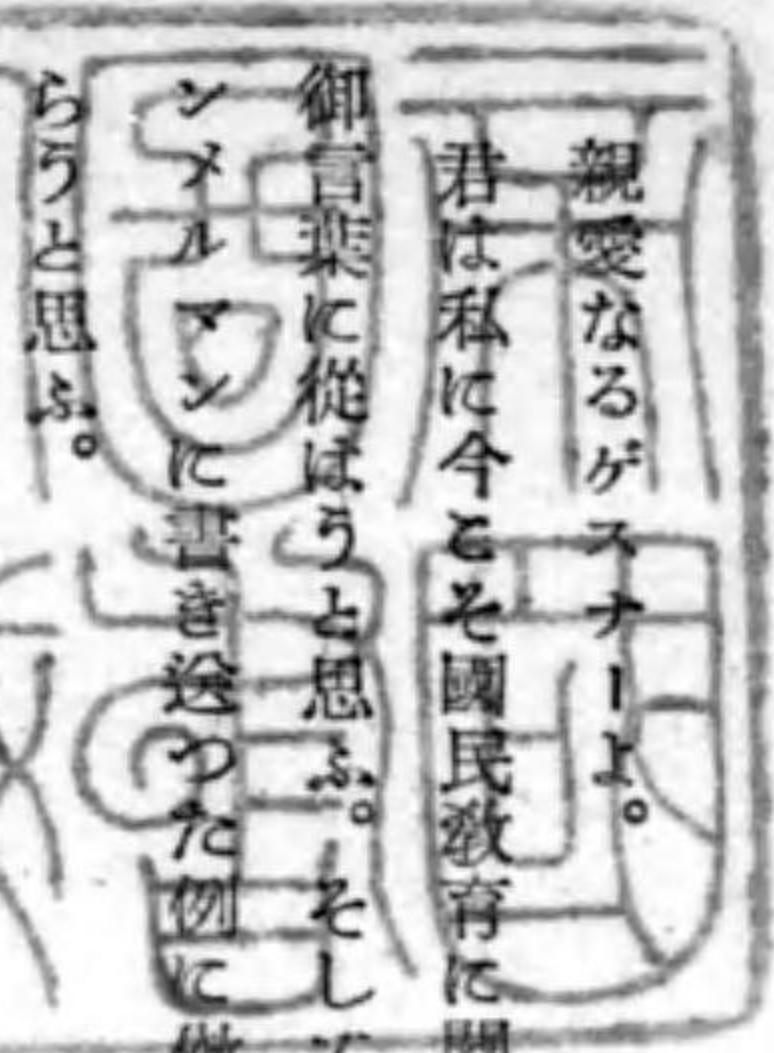 親愛なるゲスナーよ。
君は私に今こそ國民敎育に
御言葉に從はうと思ふ。そし
ンメルマンに書き送つた例に
らうと思ふ。